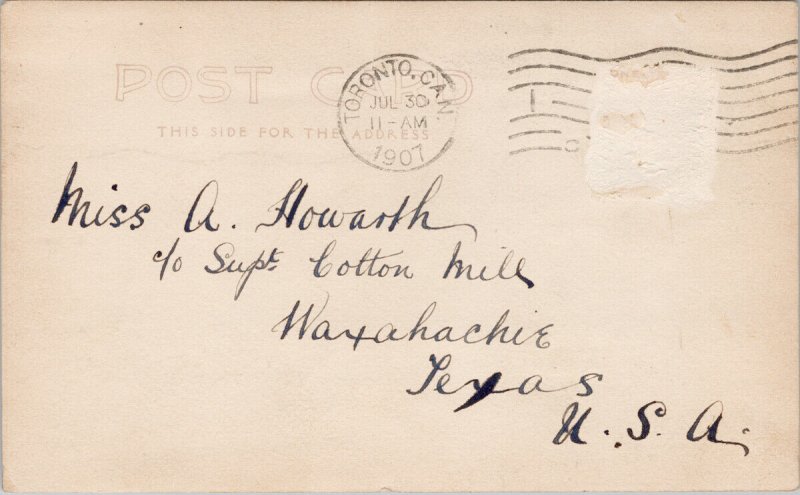 POST CARD
THIS SIDE FOR THE ADDRESS
TORONTO, CAN.
JUL 30
11-AM
1907
Miss A. Howarth
c/o Supt. Cotton Mill
Waxahachie
Texas
U.S.A.